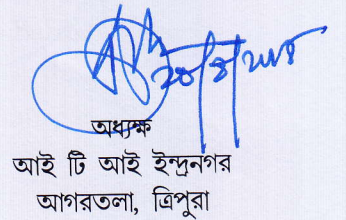 অধ্যক্ষ
আই টি আই ইন্দ্রনগর
আগরতলা, ত্রিপুরা